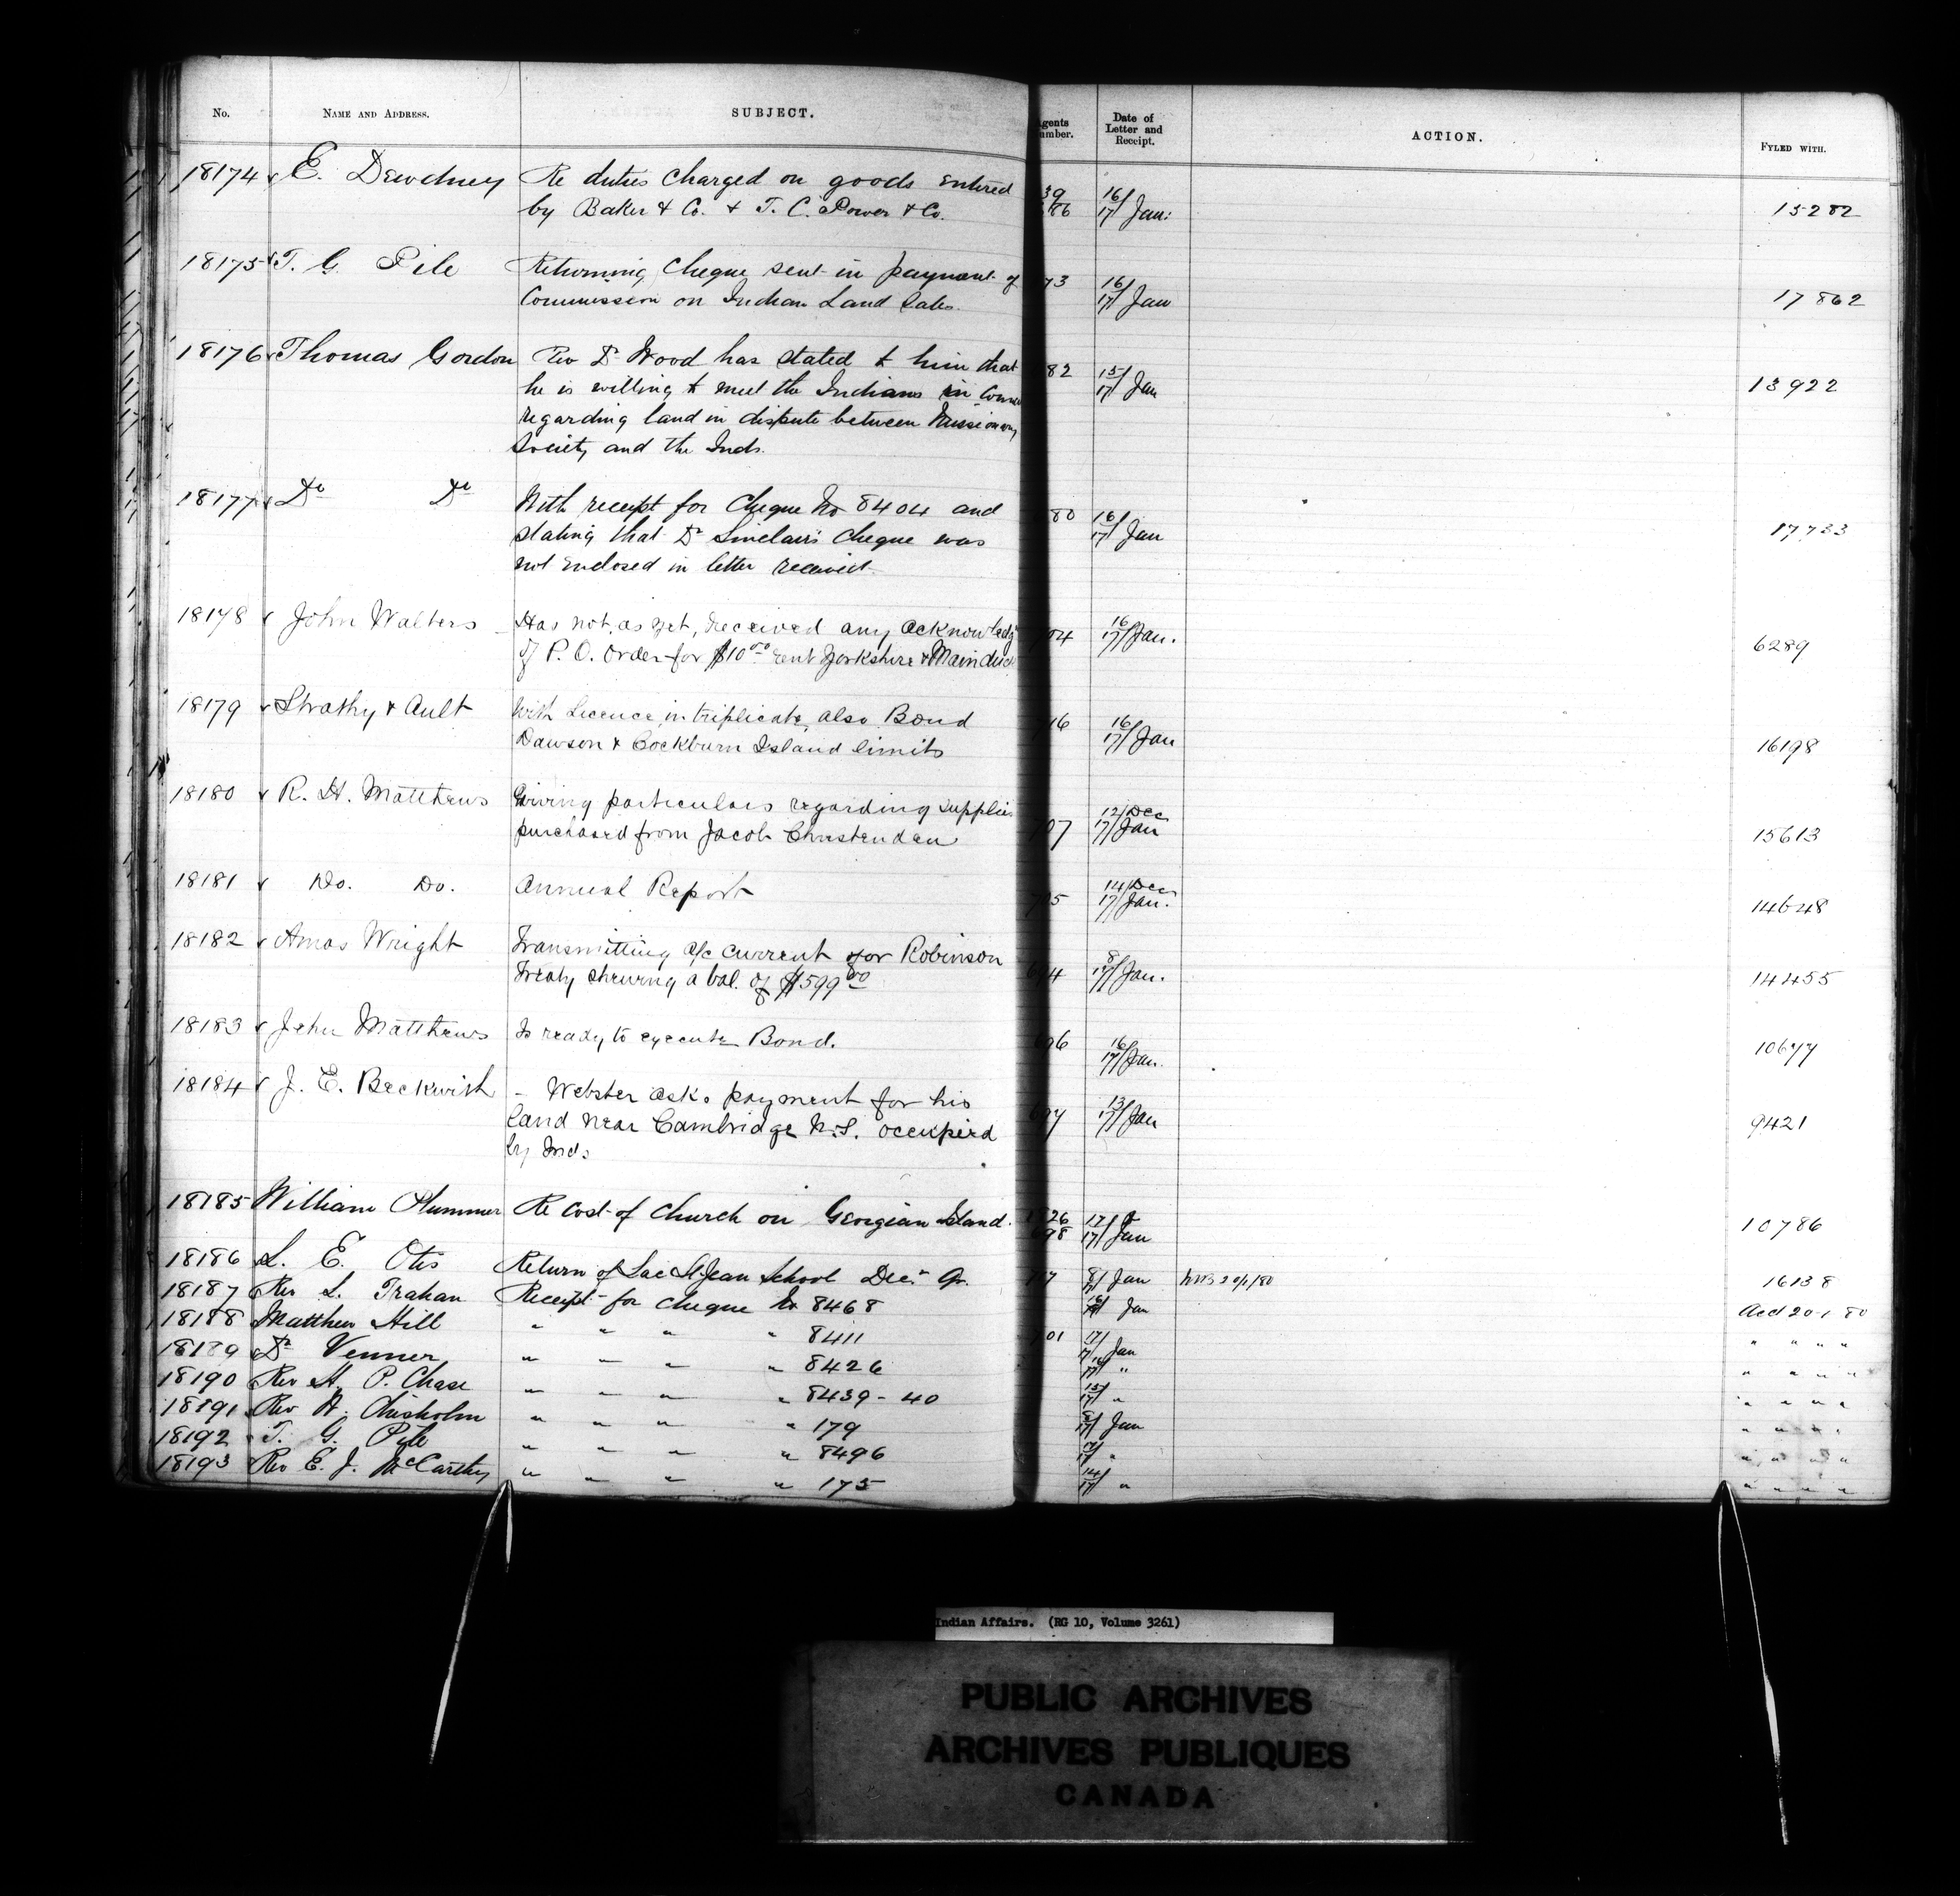 No. NAME AND ADDRESS. SUBJECT. Agents Number. Date of Letter and Receipt. ACTION. FYLED WITH.
18174 E. Dewdney Re duties charged on goods entered 39 16/ 
by Baker & Co. & T. C. Power & Co. 86 17/ Jan: 15282
18175 T. G. Pile Returning cheque sent in payment of 73 16/
Commission on Indian Land Sales. 17/ Jan 17862
18176 Thomas Gordon Rev Dr Wood has stated to him that 82 15/
he is willing to meet the Indians in 17/ Jan 13922
regarding land in dispute between Missionary
Society and the Inds.
18177 Do Do With receipt for Cheque No 8404 and 80 16/
stating that Dr Sinclair's cheque was 17/ Jan 17733
not enclosed in letter received
18178 John Walters Has not, as yet, received any acknowledg 704 16/
of P. O. Order for $10.00 rent Yorkshire & Main duck 17/ Jan. 6289
18179 Strathy & Ault With Licence in triplicate, also Bond 716 16/
Dawson & Cockburn Island limits 17/ Jan 16198
18180 R. H. Matthews Giving particulars regarding supplies 12/ Dec
purchased from Jacob Christendan 707 17/ Jan 15613
18181 Do. Do. Annual Report 705 14/ Dec
17/ Jan. 14648
18182 Amos Wright Transmitting a/c current for Robinson 8/
Treaty shewing a bal. of $599.00 694 17/ Jan. 14455
18183 John Matthews Is ready to execute Bond. 696 16/
17/ Jan. 10677
18184 J. E. Beckwith - Webster asks payment for his 13/
land near Cambridge N.S. occupied 697 17/ Jan 9421
by Inds
18185 William Plummer Re cost of Church on Georgian Island. 26 17/
698 17/ Jan 10786
18186 L. E. Otis Return of Lac St Jean School Decr Qr. 717 8/ Jan 16138
18187 Rev L. Trahan Receipt for cheque No 8468 16/ Jan Acd 20-1-80
18188 Matthew Hill " " " " 8411 701 17/ Jan " " " "
18189 Dr Venner " " " " 8426 16/ 17/ " " " " "
18190 Rev H. P. Chase " " " " 8439-40 15/ 17/ " " " " "
18191 Rev A. Chisholm " " " " 179 17/ Jan " " " "
18192 T. G. Pile " " " " 8496 17/ " " " " "
18193 Rev E. J. McCarthy " " " " 175 14/ 17/ " " " " "
Indian Affairs. (RG 10, Volume 3261)
PUBLIC ARCHIVES
ARCHIVES PUBLIQUES
CANADA